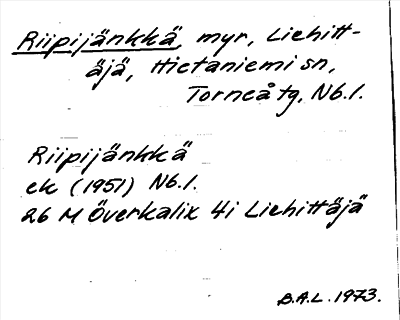 Riipijänkkä, myr, Liehitt-
äjä, Hietaniemi sn,
Torneå tg, Nb.l.
Riipijänkkä
ek (1951) Nb.l.
26 M Överkalix 4i Liehittäjä
B.A.L. 1973.